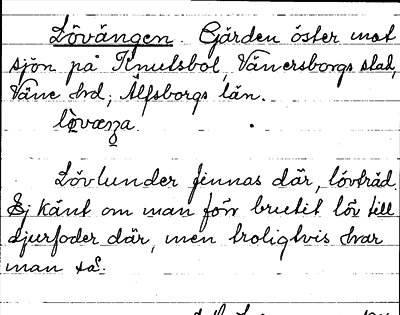 Lövängen. Gärden öster mot
sjön på Knutsbol, Vänersborgs stad,
Väne hrd, Älfsborgs län.
Lövlunder finnas där, lövträd.
Ej känt om man förr brutit löv till
djurfoder där, men troligtvis har
man så.